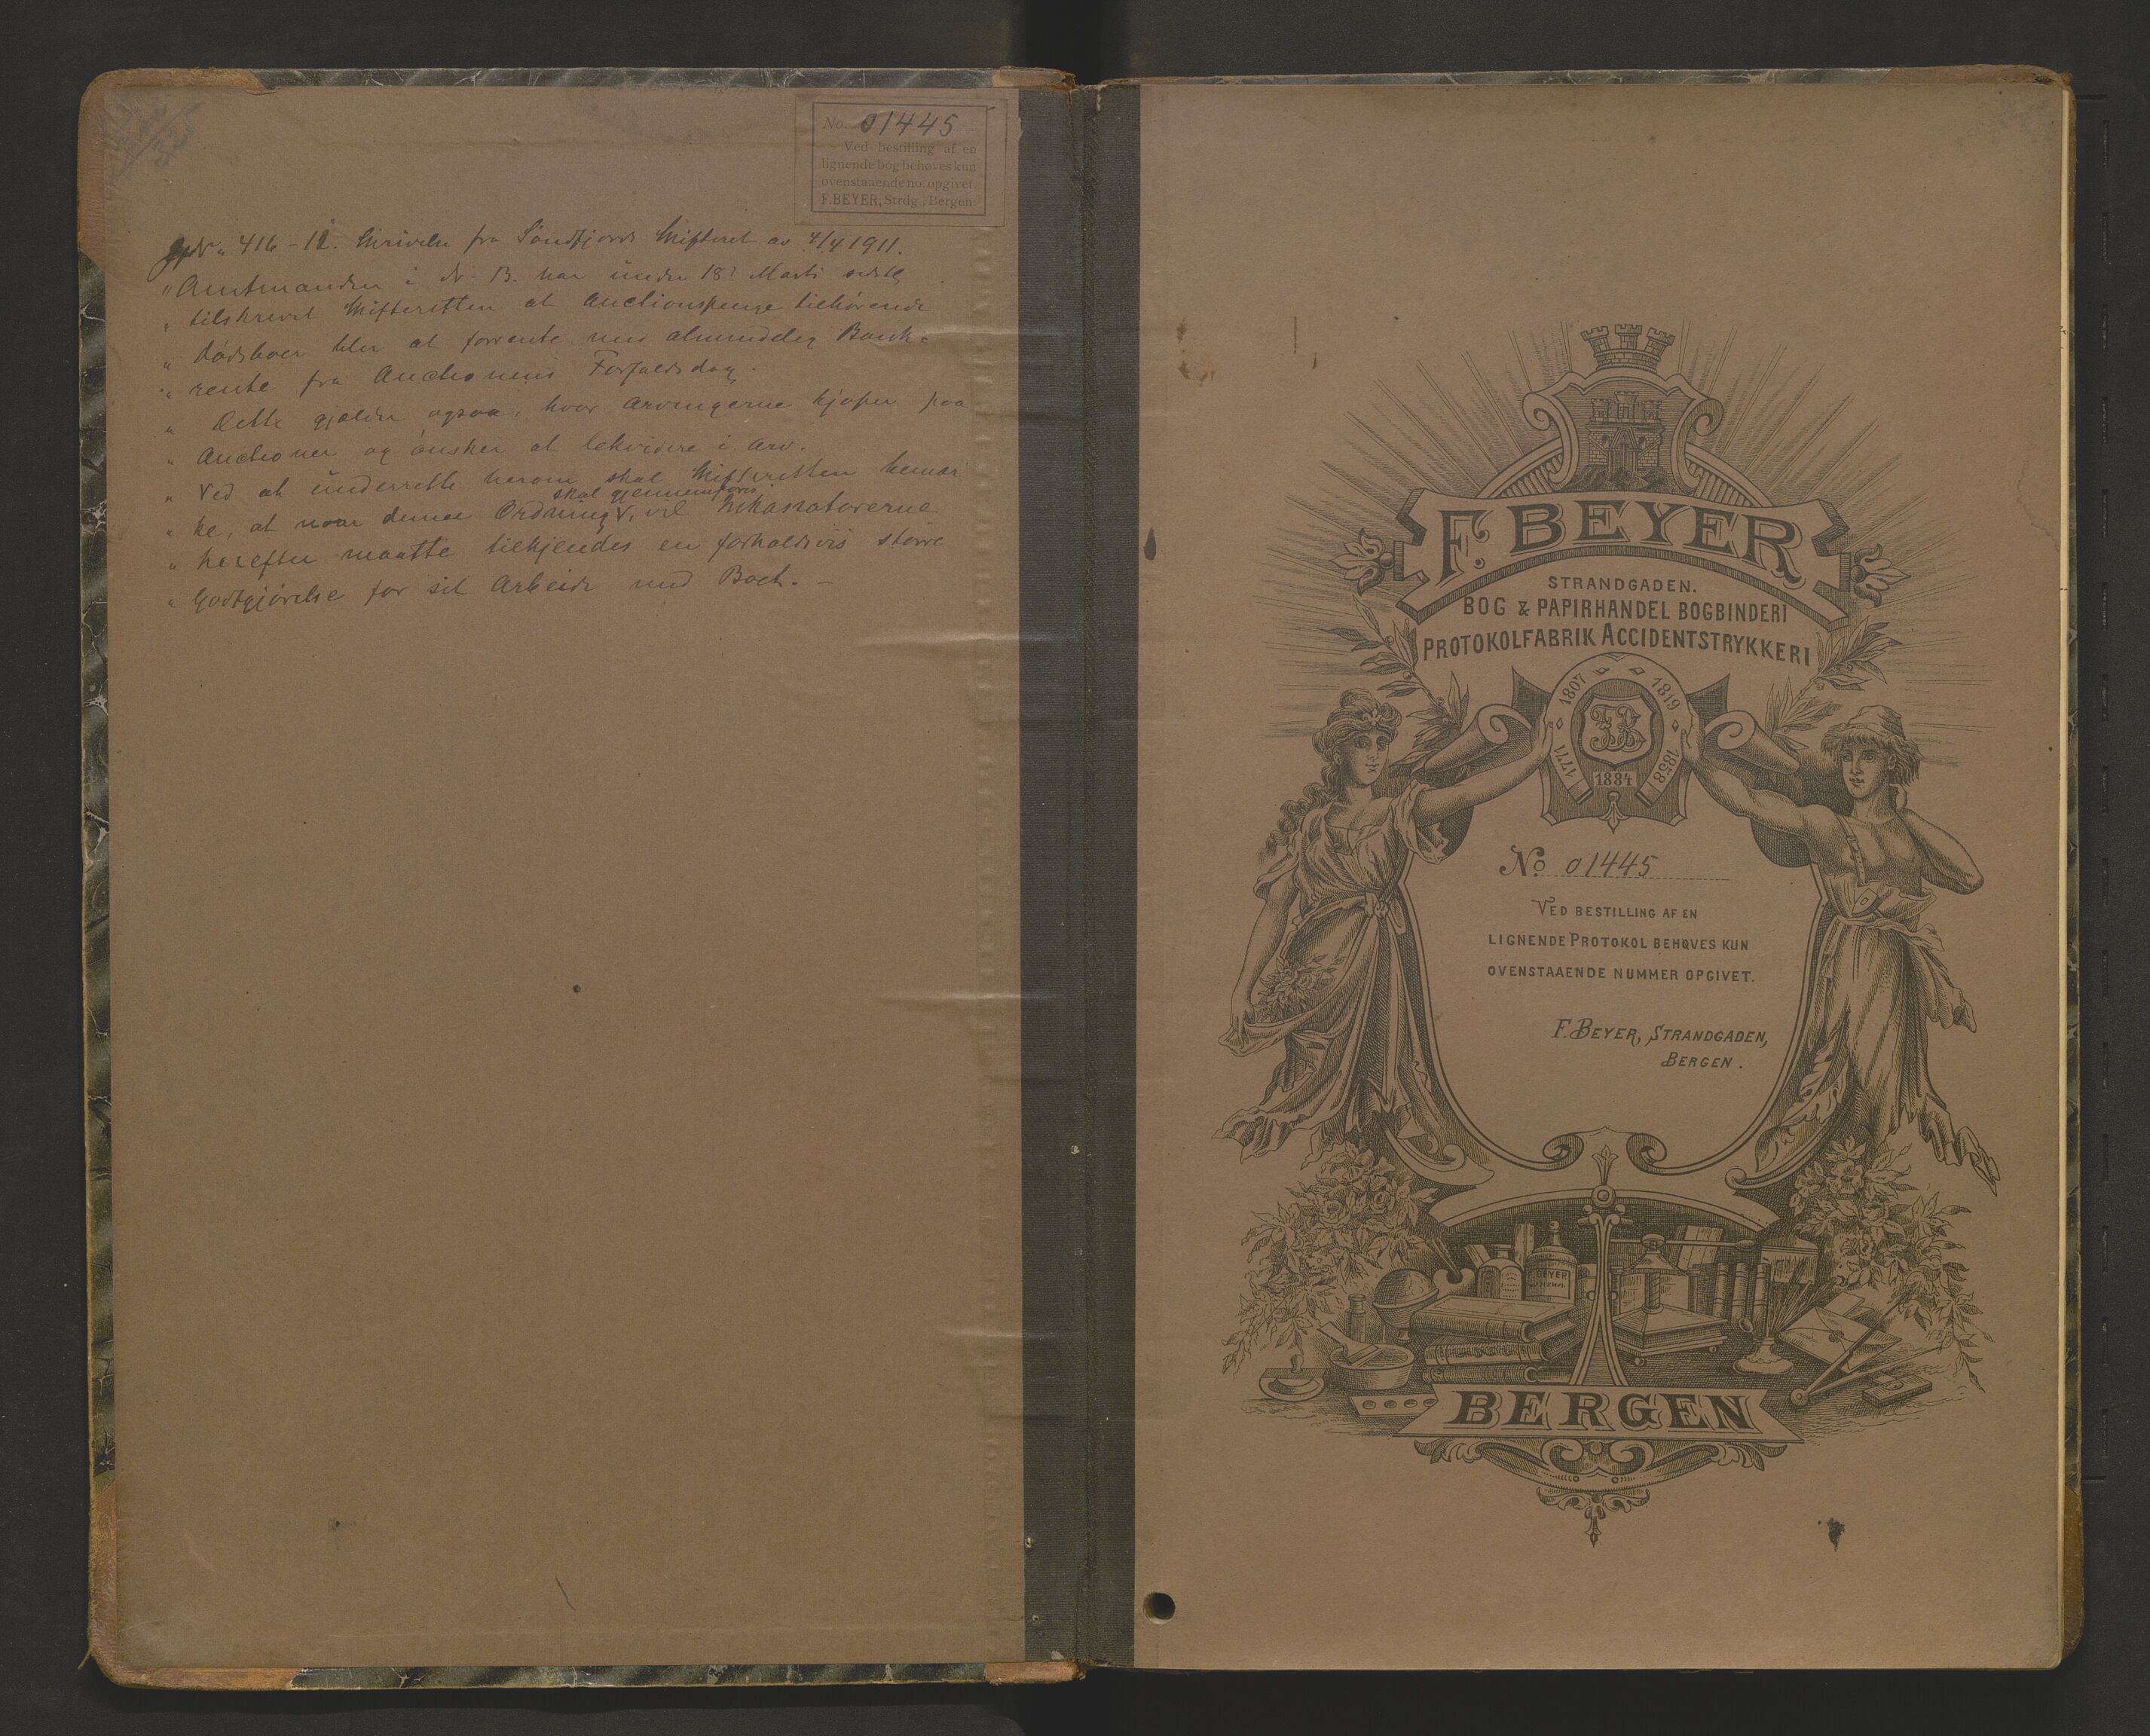 No. 01445
Ved bestilling af en
lignende bog behøves kun
ovenstaaende no. opgivet.
F. BEYER, Strdg., Bergen.
416-12. Skrivelse fra Søndfjords Skifteret av 4/4 1911.
"Amtmanden i N. B. har under 18. Marts sidstl.
" tilskrevet Skifteretten at Auctionspenge tilhørende
" dødsboer blir at forrente med almindelig Bank-
" rente fra Auctionens Forfaldsdag.
" Dette gjælder ogsaa, hvor arvingerne kjøper paa
" Auctioner og ønsker at likvidere i arv.
" Ved at underrette herom skal Skifteretten bemær
" ke, at naar denne Ordning skal gjennemføres, vil Inkassatorerne
" herefter maatte tilkjendes en forholdsvis større
" Godtgjørelse for sit Arbeide med Boet. -
F. BEYER
STRANDGADEN.
BOG & PAPIRHANDEL BOGBINDERI
PROTOKOLFABRIK ACCIDENTSTRYKKERI
1771 1807 1819 1858
FB
1884
No 01445
VED BESTILLING AF EN
LIGNENDE PROTOKOL BEHØVES KUN
OVENSTAAENDE NUMMER OPGIVET.
F. BEYER, STRANDGADEN,
BERGEN.
F. BEYER
BERGEN